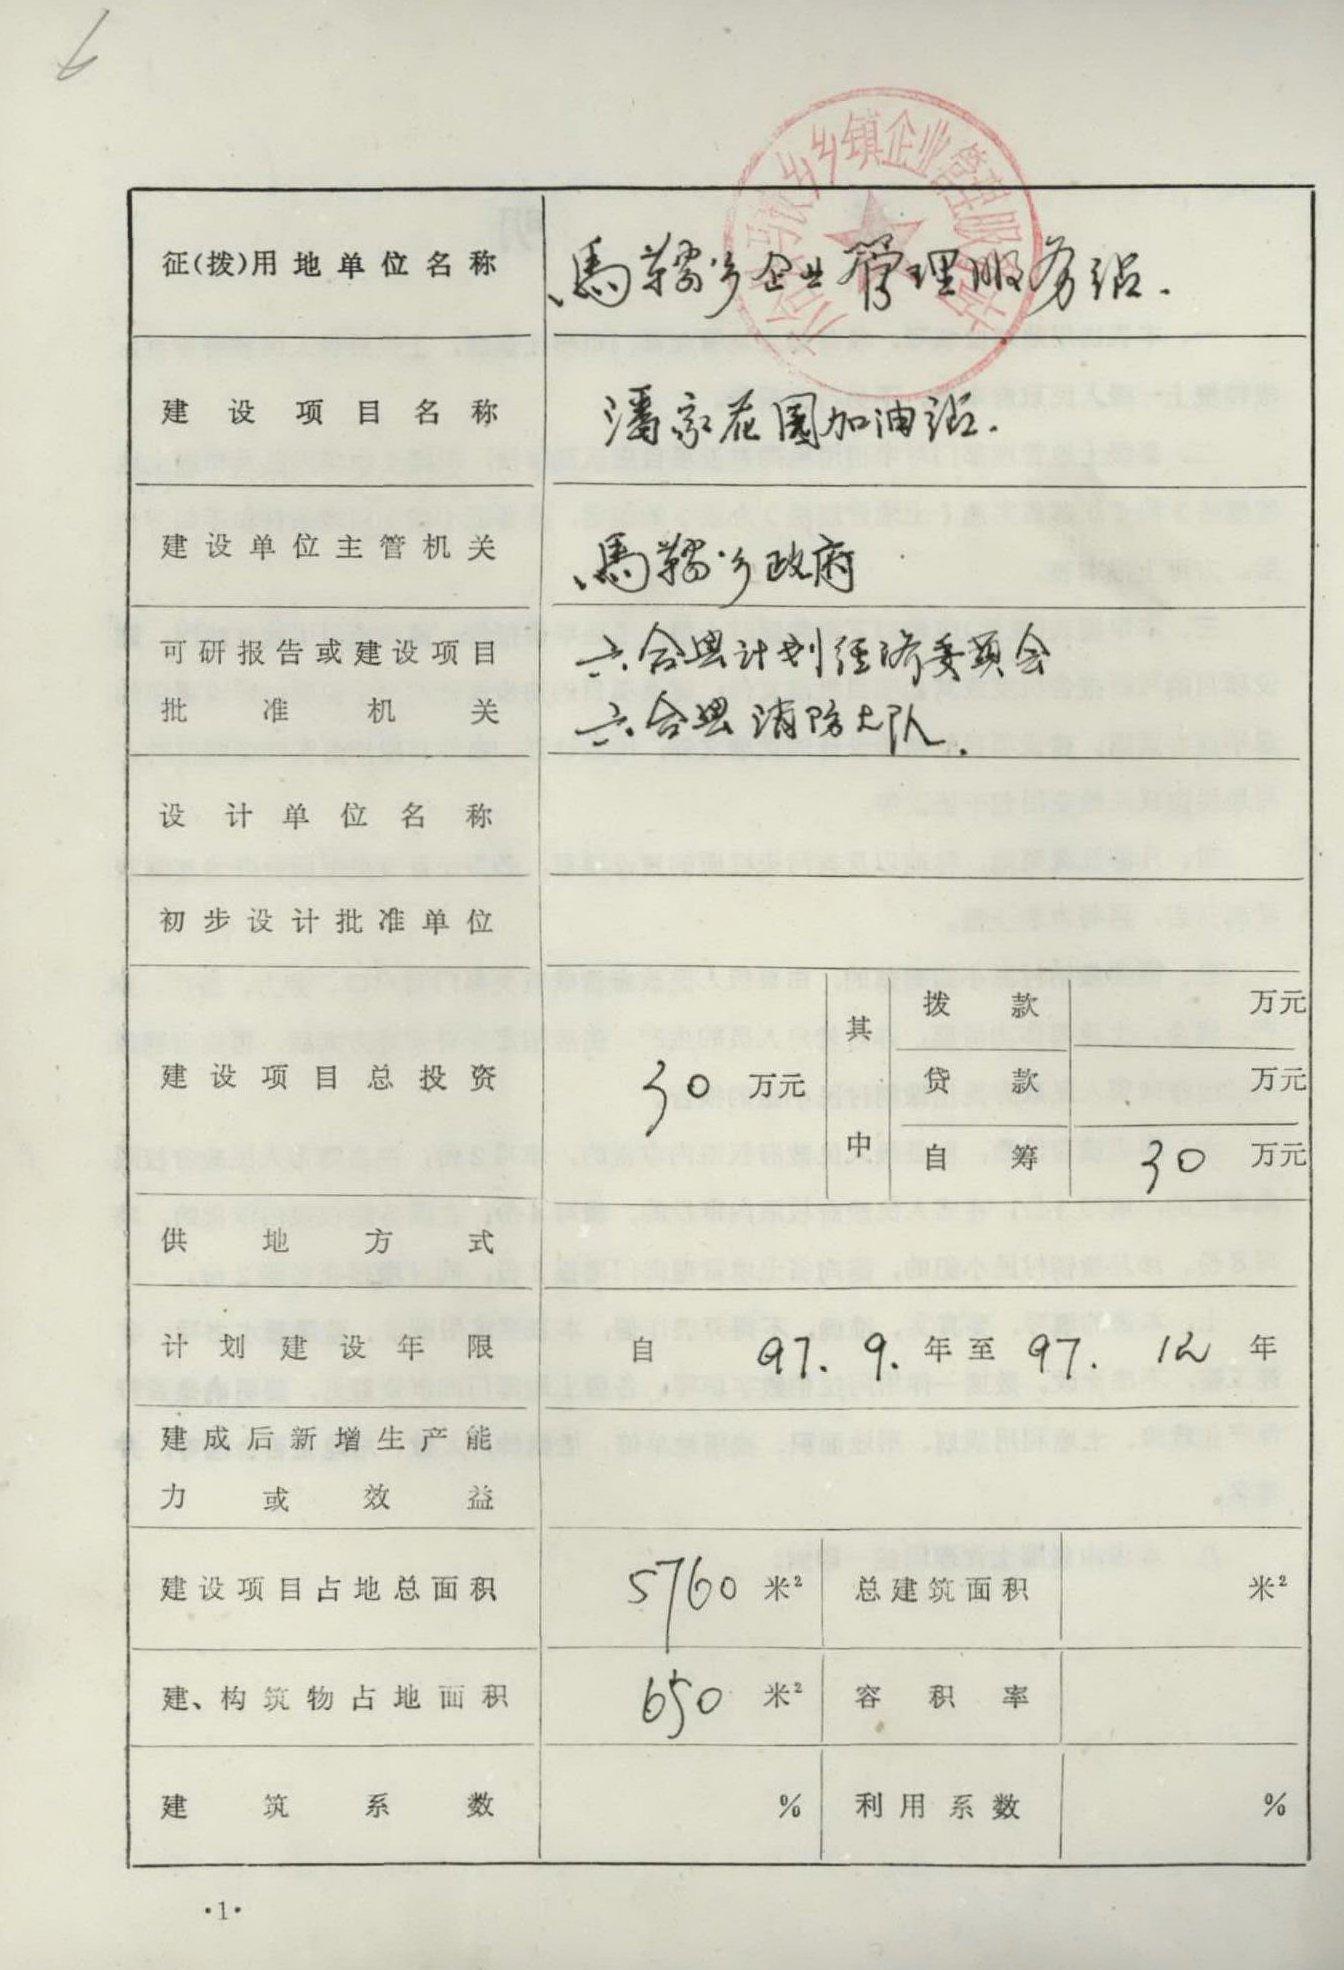 征(拨)用地单位名称 馬鞍乡企业管理服务站.
建设项目名称 潘家花園加油站.
建设单位主管机关 馬鞍乡政府
可研报告或建设项目批准机关 六合县计划经济委员会
六合县消防大队.
设计单位名称
初步设计批准单位
建设项目总投资 30 万元 其中 拨款 万元
贷款 万元
自筹 30 万元
供地方式
计划建设年限 自 97. 9. 年至 97. 12 年
建成后新增生产能
力或效益
建设项目占地总面积 5760 米² 总建筑面积 米²
建、构筑物占地面积 650 米² 容积率
建筑系数 % 利用系数 %
·1·